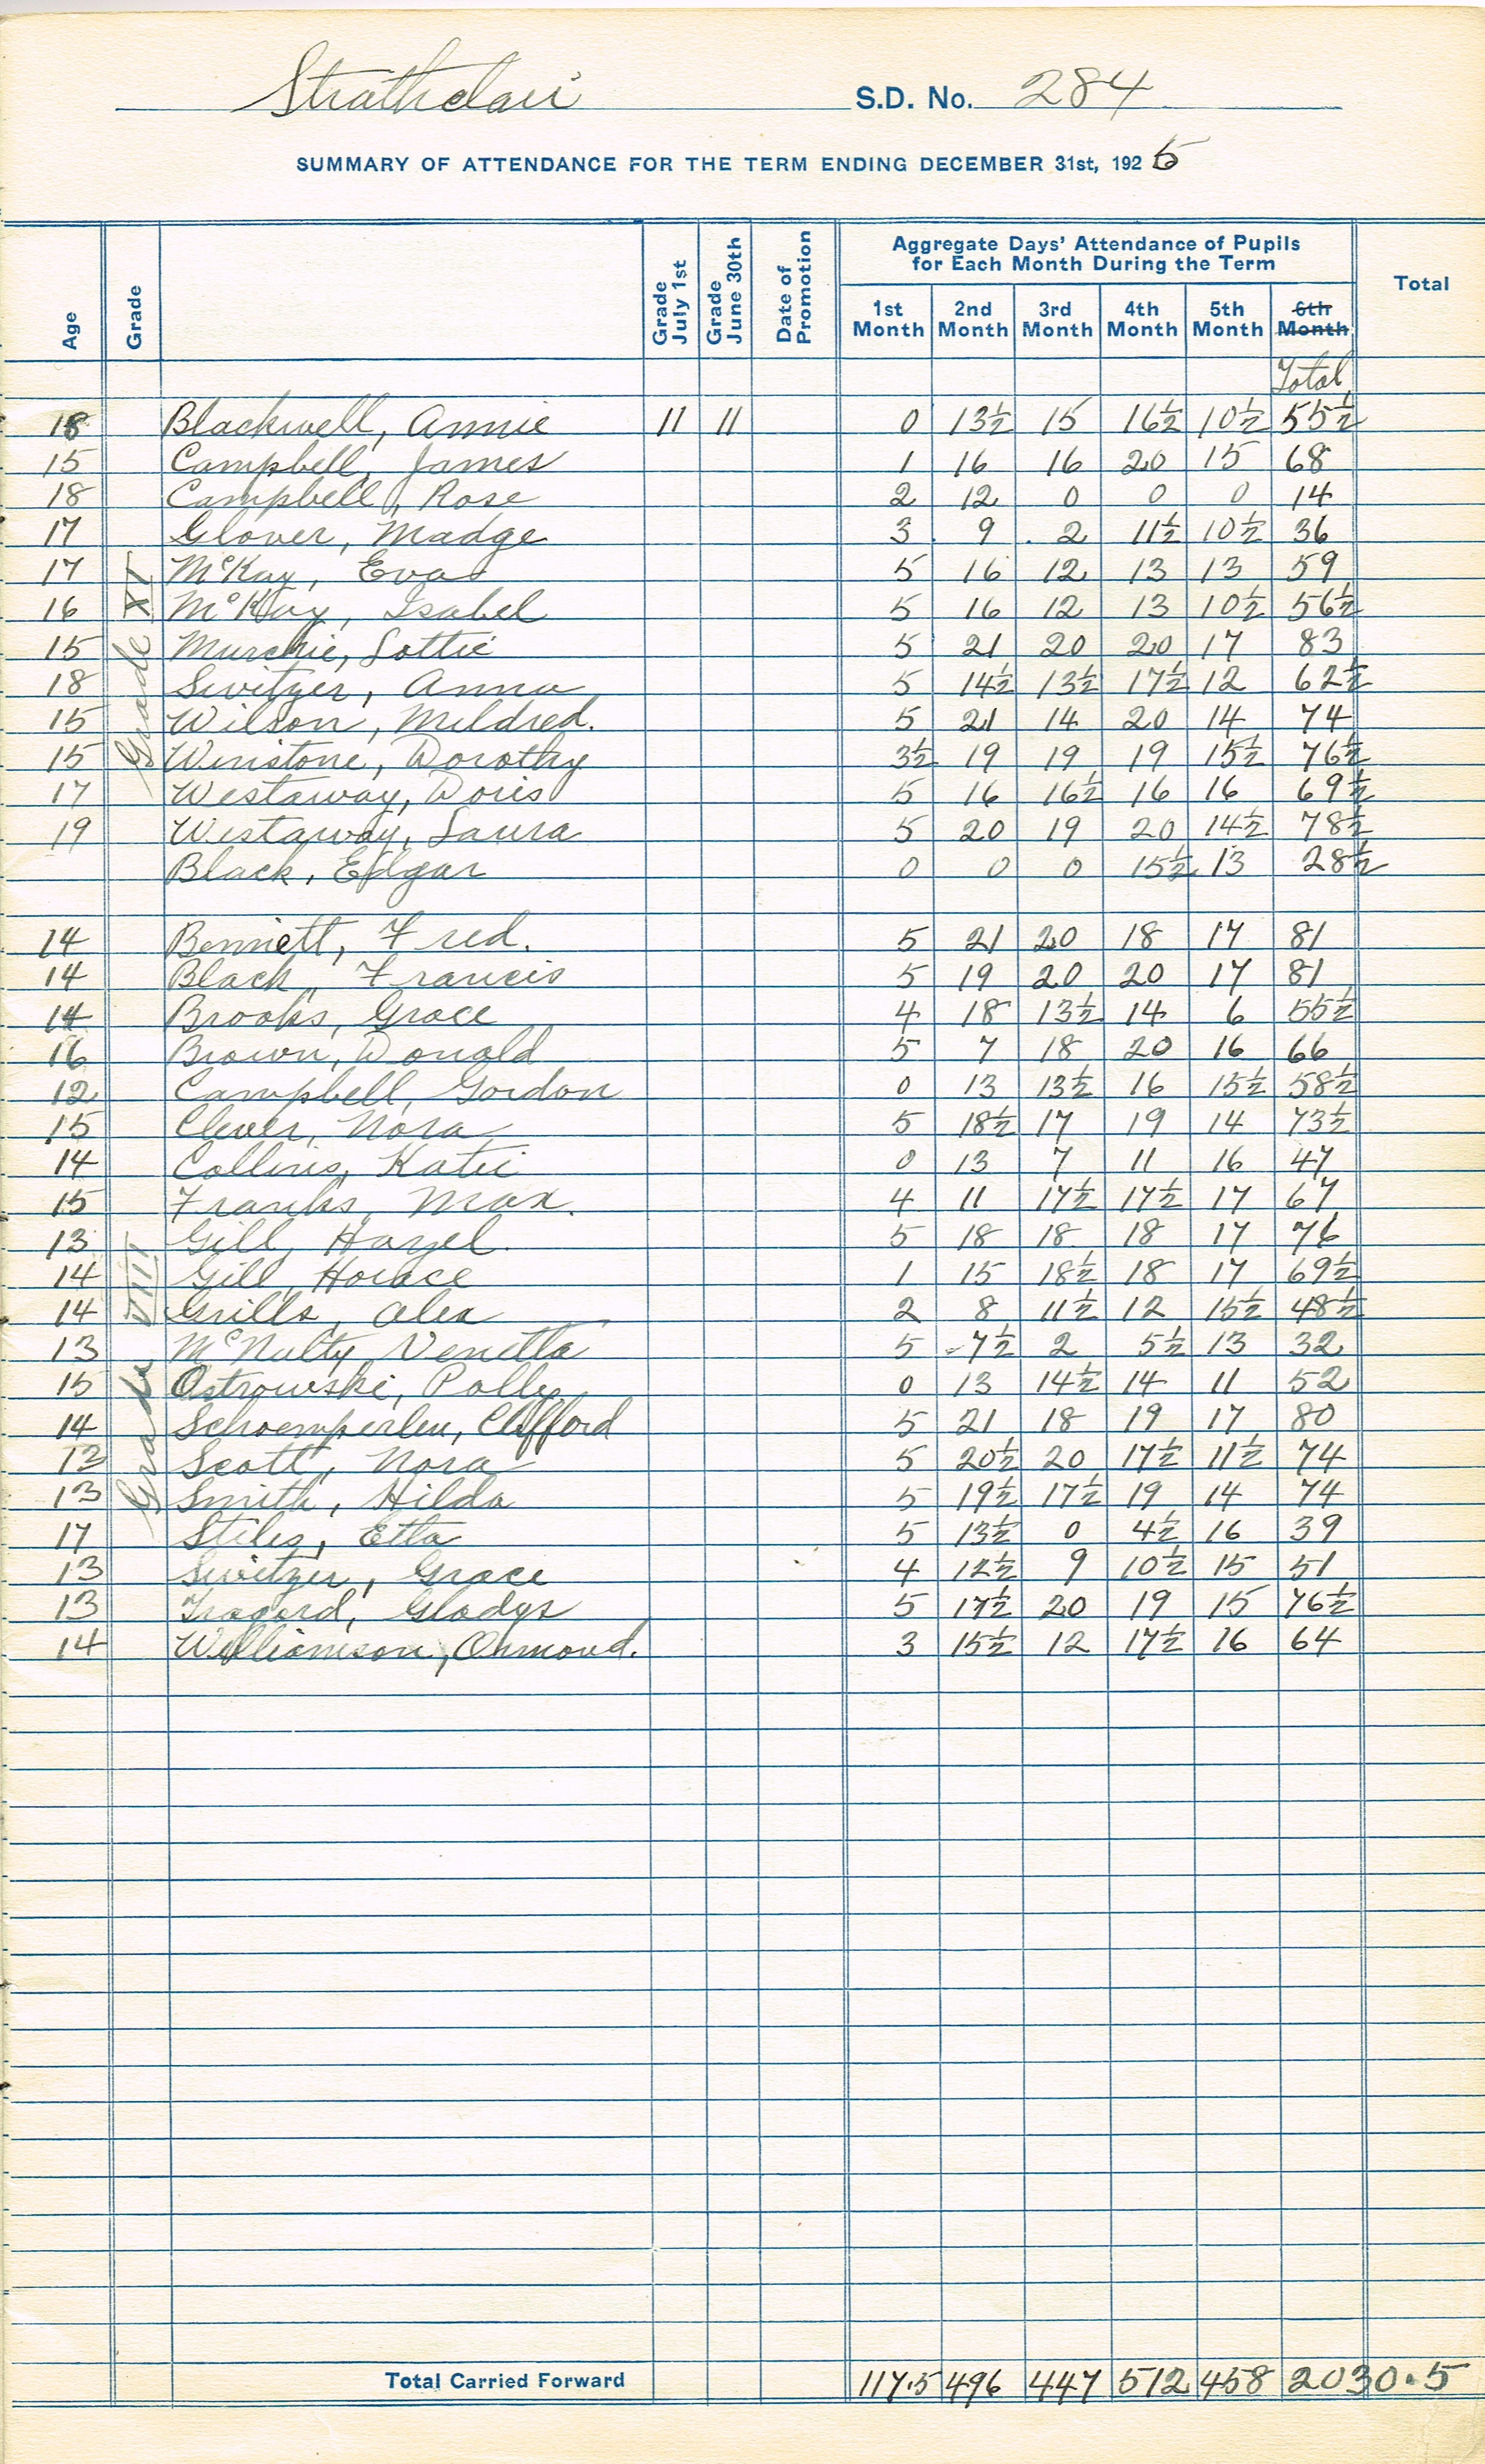 Strathclair S.D. No. 284
SUMMARY OF ATTENDANCE FOR THE TERM ENDING DECEMBER 31st, 1925
Age Grade Grade July 1st Grade June 30th Date of Promotion Aggregate Days' Attendance of Pupils for Each Month During the Term Total
1st Month 2nd Month 3rd Month 4th Month 5th Month 6th Month
Total
Grade XI
18 Blackwell, Annie 11 11 0 13½ 15 16½ 10½ 55½
15 Campbell, James 1 16 16 20 15 68
18 Campbell, Rose 2 12 0 0 0 14
17 Glover, Madge 3 9 2 11½ 10½ 36
17 McKay, Eva 5 16 12 13 13 59
16 McKay, Isabel 5 16 12 13 10½ 56½
15 Murchie, Lottie 5 21 20 20 17 83
18 Switzer, Anna 5 14½ 13½ 17½ 12 62½
15 Wilson, Mildred. 5 21 14 20 14 74
15 Winstone, Dorothy 3½ 19 19 19 15½ 76½
17 Westaway, Doris 5 16 16½ 16 16 69½
19 Westaway, Laura 5 20 19 20 14½ 78½
Black, Edgar 0 0 0 15½ 13 28½
Grade VIII
14 Bennett, Fred. 5 21 20 18 17 81
14 Black, Francis 5 19 20 20 17 81
14 Brooks, Grace 4 18 13½ 14 6 55½
16 Brown, Donald 5 7 18 20 16 66
12 Campbell, Gordon 0 13 13½ 16 15½ 58½
15 Clever, Nora 5 18½ 17 19 14 73½
14 Collins, Katie 0 13 7 11 16 47
15 Franks, Max. 4 11 17½ 17½ 17 67
13 Gill, Hazel. 5 18 18 18 17 76
14 Gill, Horace 1 15 18½ 18 17 69½
14 Grills, Alex 2 8 11½ 12 15½ 48½
13 McNulty, Venetta 5 7½ 2 5½ 13 32
15 Ostrowski, Polly 0 13 14½ 14 11 52
14 Schoemperlen, Clifford 5 21 18 19 17 80
13 Scott, Nora 5 20½ 20 17½ 11½ 74
13 Smith, Hilda 5 19½ 17½ 19 14 74
17 Stiles, Etta 5 13½ 0 4½ 16 39
13 Switzer, Grace 4 12½ 9 10½ 15 51
13 Gladys 5 17½ 20 19 15 76½
14 Williamson, Ormond. 3 15½ 12 17½ 16 64
Total Carried Forward 117.5 496 447 512 458 2030.5